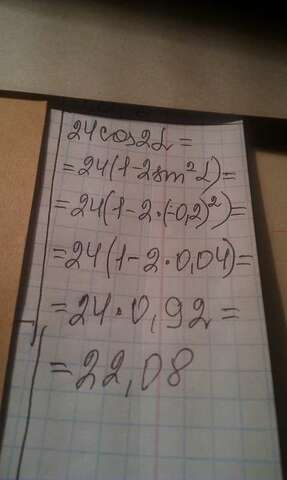 24cos2α =
=24(1-2sin²α)=
=24(1-2·(-0,2)²)=
=24(1-2·0,04)=
=24·0,92=
=22,08